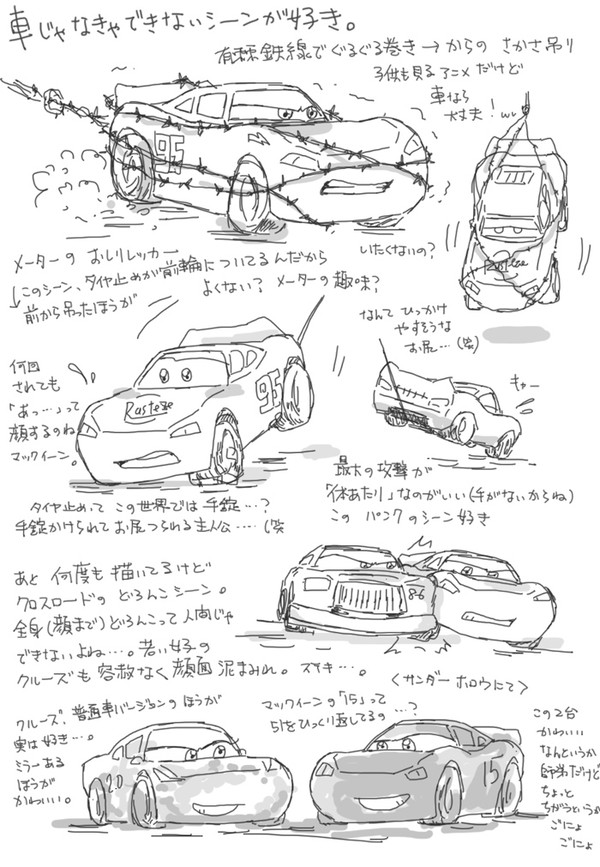 車じゃなきゃできないシーンが好き。
有棘鉄線でぐるぐる巻き→からの さかさ吊り
子供も見るアニメだけど
車なら
大丈夫！ww
95
いたくないの？
Rusteze
メーターの おしりレッカー
↓このシーン、タイヤ止めが前輪についてるんだから
前から吊ったほうが
よくない？ メーターの趣味？
なんて ひっかけ
やすそうな
お尻…(笑)
何回
されても
「あっ…」って
顔するのね
マックィーン。
Rusteze
95
キャー
タイヤ止めって この世界では 手錠…？
手錠かけられて お尻つられる主人公……(笑
最大の攻撃が
「体あたり」なのがいい(手がないからね)
この パンクのシーン好き
86
あと 何度も描いてるけど
クロスロードの どろんこシーン。
全身(顔まで)どろんこって人間じゃ
できないよね…。若い女子の
クルーズも 容赦なく 顔面 泥まみれ。スキ…。
<サンダーホロウにて>
クルーズ、普通車バージョンのほうが
実は好き…。
ミラーある
ほうが
かわいい。
20
マックィーンの「15」って
51をひっくり返してるの…？
15
この2台
かわいい
なんというか
師弟だけど
ちょっと
ちがうというか
ごにょ
ごにょ